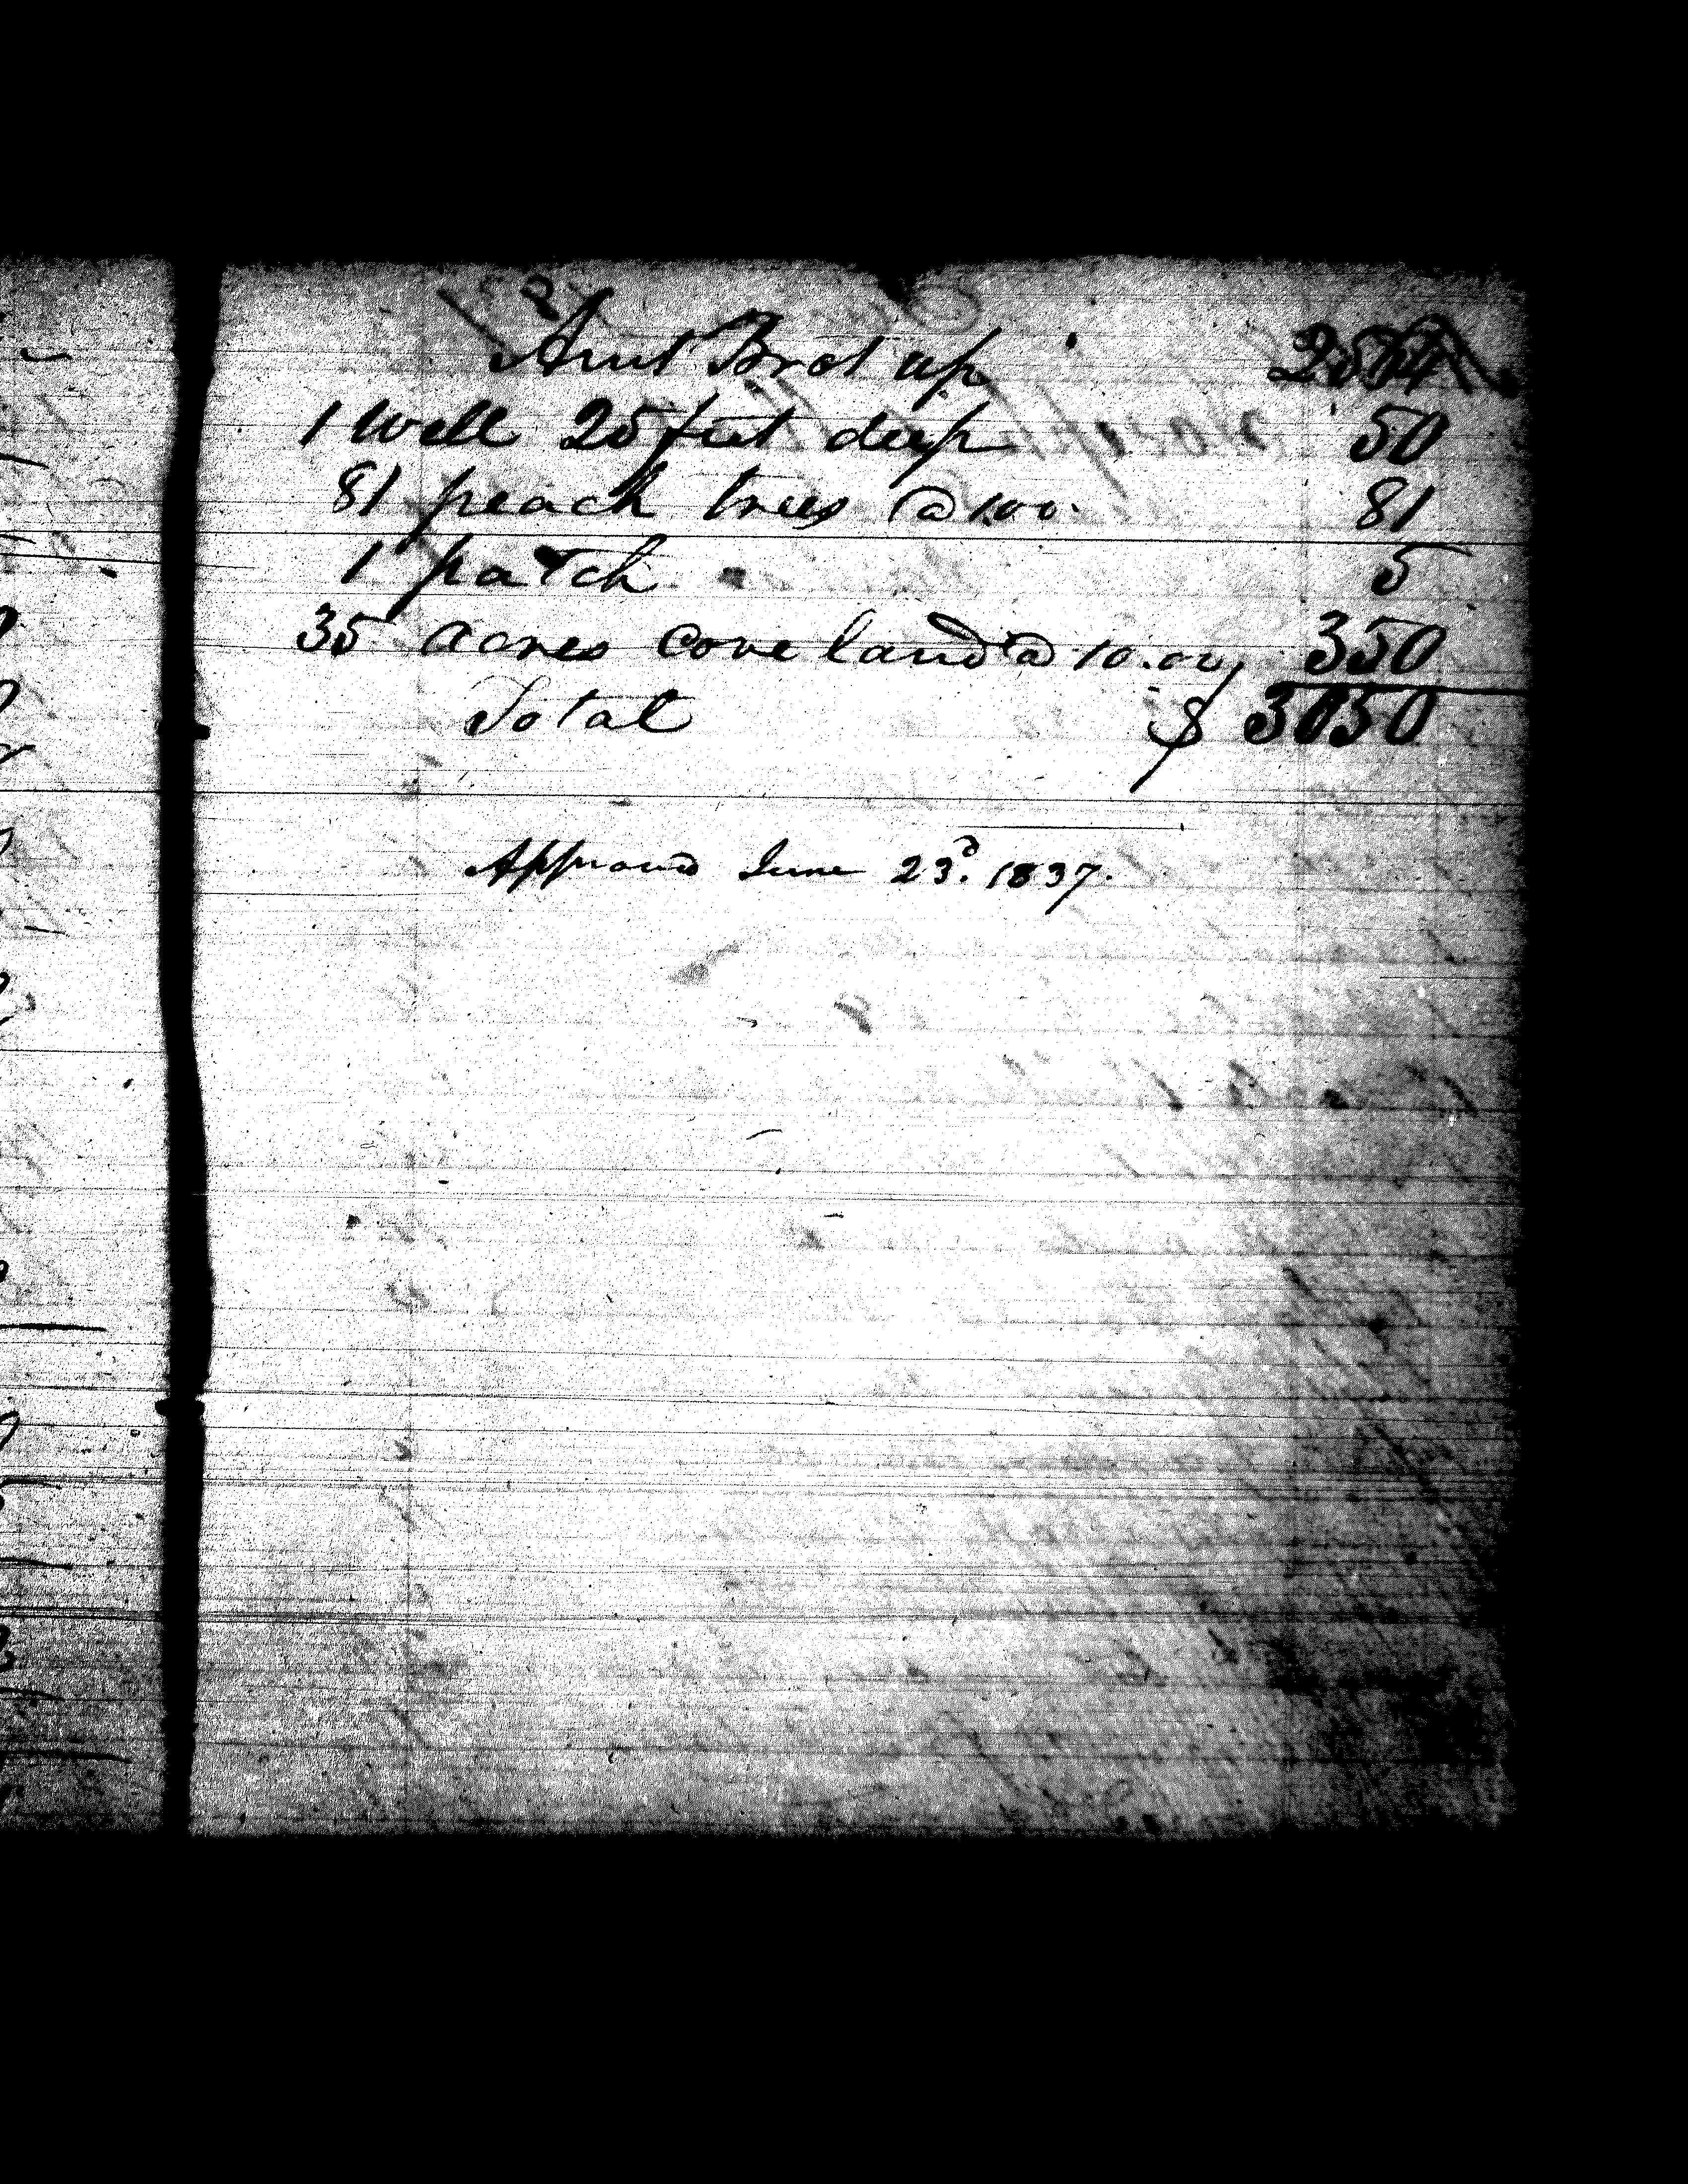 Amt Brot up 2564
1 Well 25 feet deep 50
81 peach trees @ 1.00. 81
1 patch 5
35 acres cove land @ 10.00, 350
Total $ 3050
Approved June 23d. 1837.